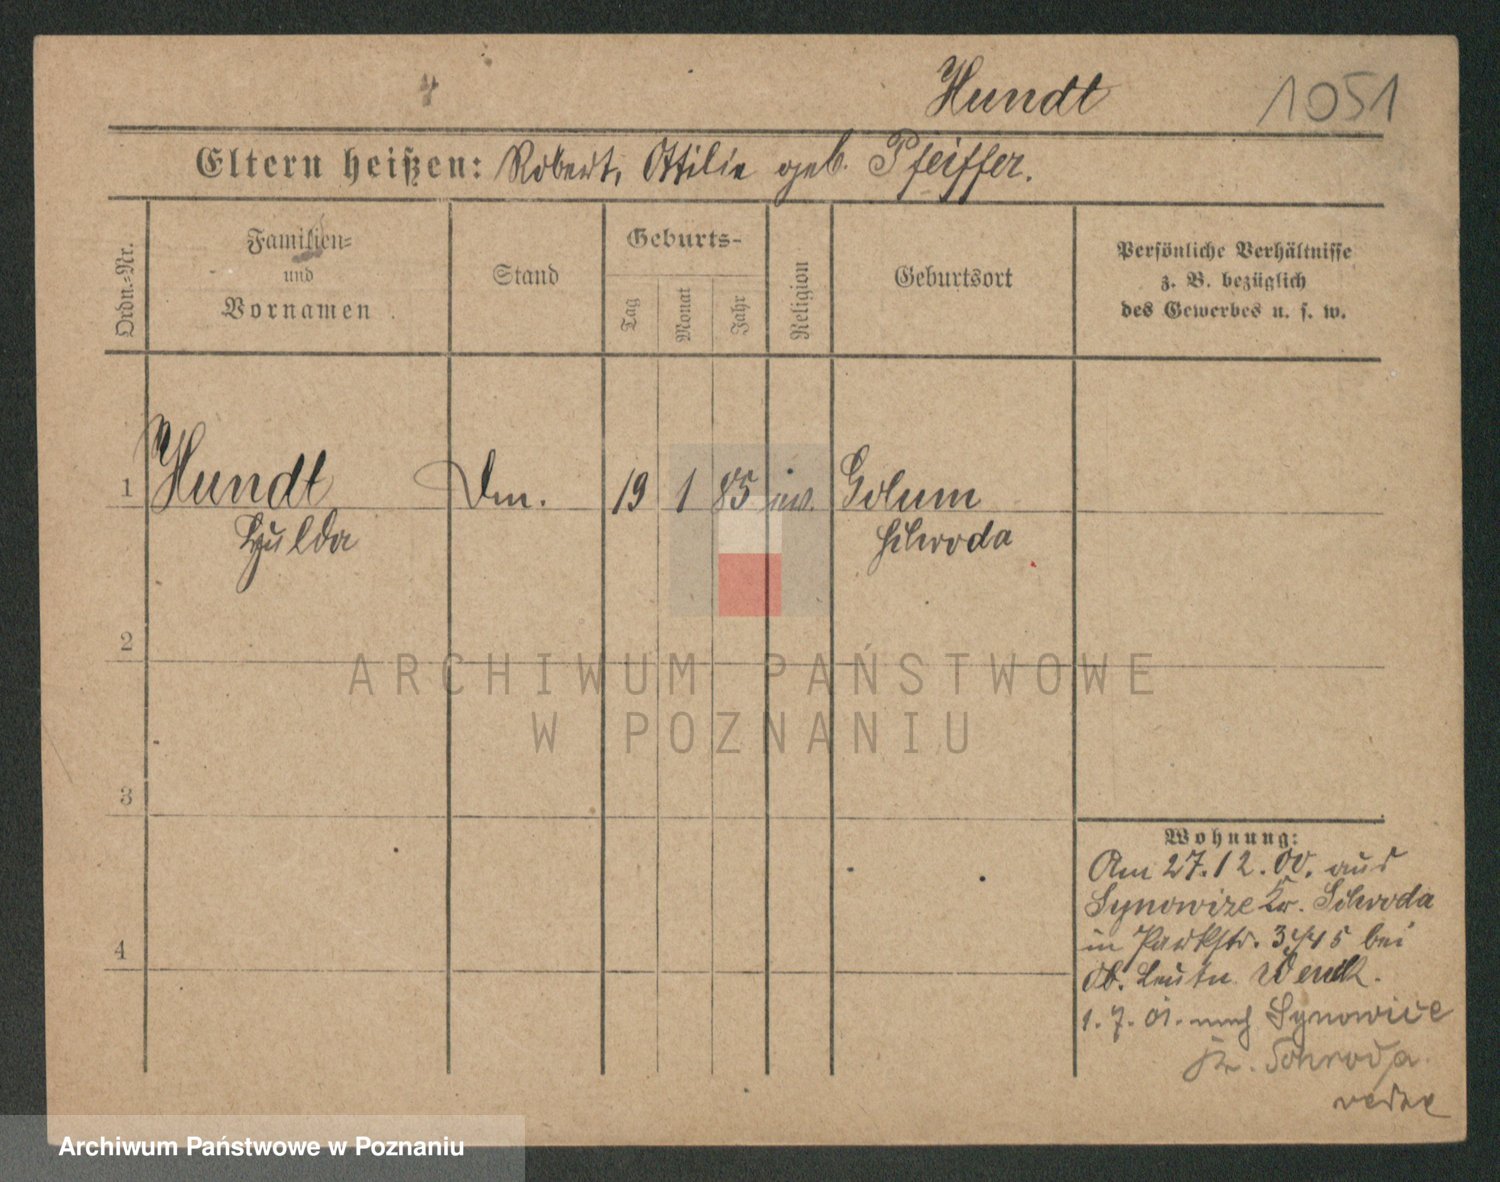 4
Hundt 1051
Eltern heißen: Robert, Ottilie geb. Pfeiffer.
Ordn.-Nr.
Familien-
und
Vornamen
Stand
Geburts-
Tag
Monat
Jahr
Religion
Geburtsort
Persönliche Verhältnisse
z. B. bezüglich
des Gewerbes u. s. w.
1 Hundt Dm. 19 1 85 ev. Golum
Hulda Schroda
2
3
4
Wohnung:
Am 27.12.00. aus
Synowize Kr. Schroda
in Parkstr. 3 bei
Ob. Leutn.
1. 7. 01. nach Synowice
Kr. Schroda
ARCHIWUM PAŃSTWOWE
W POZNANIU
Archiwum Państwowe w Poznaniu